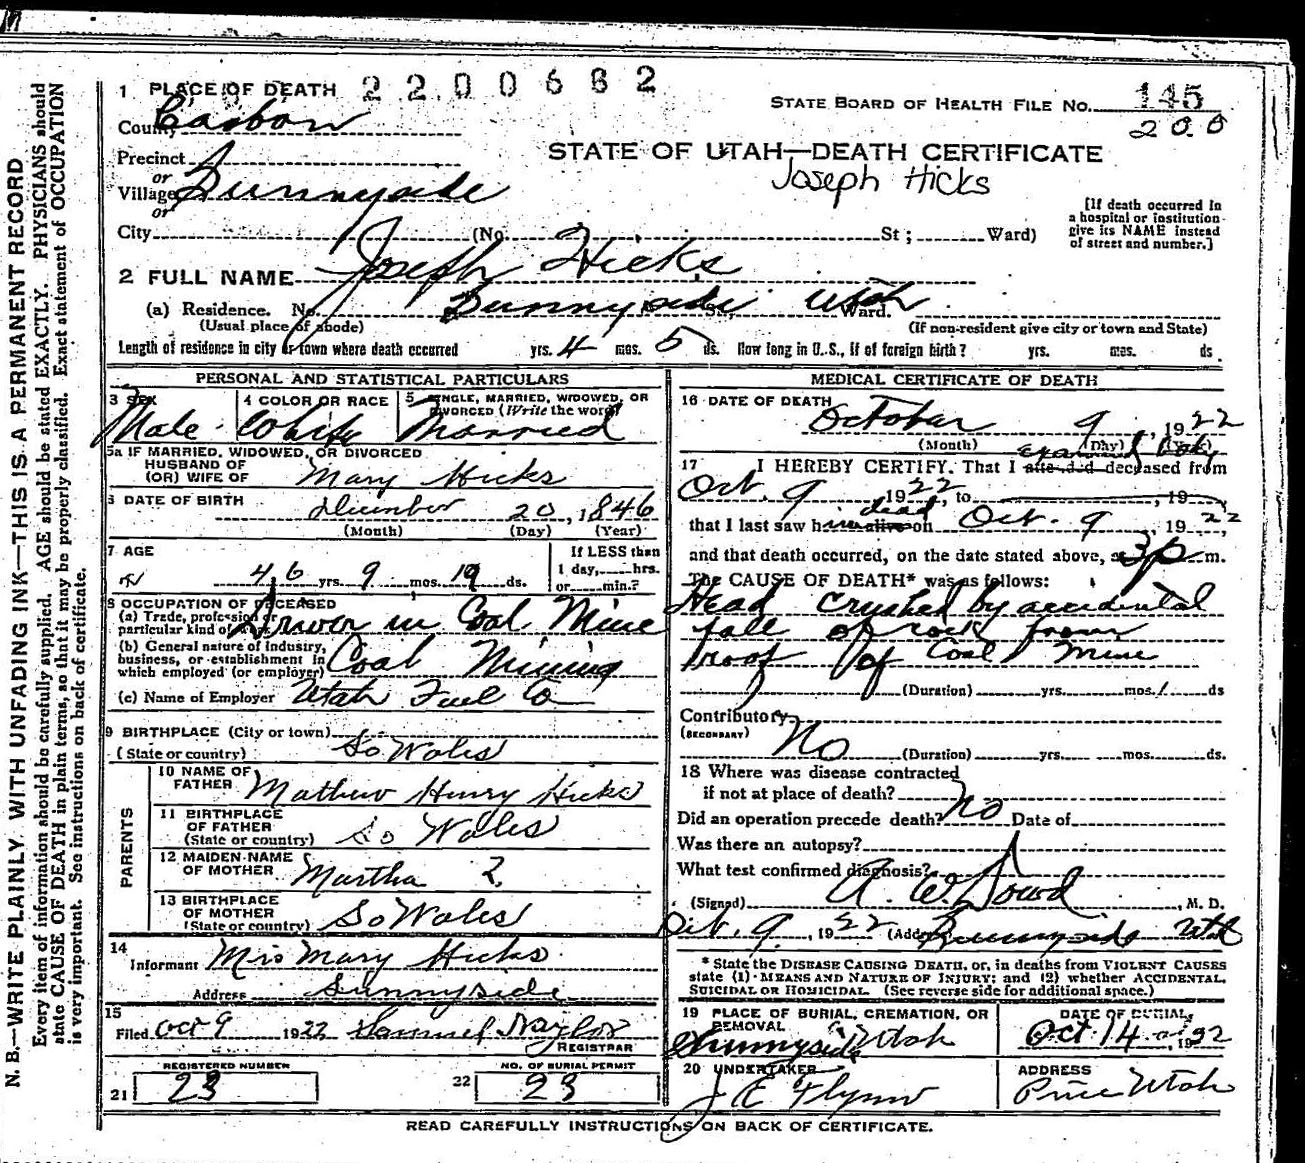 1 PLACE OF DEATH 2200682
STATE BOARD OF HEALTH FILE No. 145
200
County Carbon
STATE OF UTAH—DEATH CERTIFICATE
Joseph Hicks
Precinct
or
Village Sunnyside
or
City (No. St ; Ward)
[If death occurred in
a hospital or institution
give its NAME instead
of street and number.]
2 FULL NAME Joseph Hicks
(a) Residence. No. Sunnyside St., Utah Ward.
(Usual place of abode) (If non-resident give city or town and State)
Length of residence in city or town where death occurred yrs. 4 mos. 5 ds. How long in U.S., if of foreign birth? yrs. mos. ds.
PERSONAL AND STATISTICAL PARTICULARS
3 SEX Male
4 COLOR OR RACE White
5 SINGLE, MARRIED, WIDOWED, OR
DIVORCED (Write the word) Married
5a IF MARRIED, WIDOWED, OR DIVORCED
HUSBAND OF
(OR) WIFE OF Mary Hicks
6 DATE OF BIRTH December 20, 1846
(Month) (Day) (Year)
7 AGE
46 yrs. 9 mos. 19 ds.
If LESS than
1 day, hrs.
or min.?
8 OCCUPATION OF DECEASED
(a) Trade, profession or
particular kind of work Driver in Coal Mine
(b) General nature of industry,
business, or establishment in
which employed (or employer) Coal Mining
(c) Name of Employer Utah Fuel Co
9 BIRTHPLACE (City or town)
(State or country) So Wales
PARENTS
10 NAME OF
FATHER Mathew Henry Hicks
11 BIRTHPLACE
OF FATHER
(State or country) So Wales
12 MAIDEN NAME
OF MOTHER Martha ?
13 BIRTHPLACE
OF MOTHER
(State or country) So Wales
14
Informant Mrs Mary Hicks
Address Sunnyside
15
Filed Oct 9 1922 Samuel Naylor
REGISTRAR
REGISTERED NUMBER
21 23
NO. OF BURIAL PERMIT
22 23
MEDICAL CERTIFICATE OF DEATH
16 DATE OF DEATH
October 9, 1922
(Month) (Day) (Year)
examined body
17 I HEREBY CERTIFY, That I attended deceased from
Oct. 9 1922, to , 19
dead
that I last saw him alive on Oct. 9, 1922,
and that death occurred, on the date stated above, at 3p m.
The CAUSE OF DEATH* was as follows:
Head crushed by accidental
fall of rock from
roof of Coal Mine
(Duration) yrs. mos. 1 ds
Contributory
(SECONDARY) No
(Duration) yrs. mos. ds.
18 Where was disease contracted
if not at place of death?
Did an operation precede death? No Date of
Was there an autopsy?
What test confirmed diagnosis?
(Signed) A. W. Dowd, M. D.
Oct. 9, 1922 (Address) Sunnyside Utah
* State the DISEASE CAUSING DEATH, or, in deaths from VIOLENT CAUSES
state (1) MEANS AND NATURE OF INJURY; and (2) whether ACCIDENTAL,
SUICIDAL OR HOMICIDAL. (See reverse side for additional space.)
19 PLACE OF BURIAL, CREMATION, OR
REMOVAL
Sunnyside Utah
DATE OF BURIAL
Oct 14 1922
20 UNDERTAKER
J E Flynn
ADDRESS
Price Utah
READ CAREFULLY INSTRUCTIONS ON BACK OF CERTIFICATE.
N. B.—WRITE PLAINLY, WITH UNFADING INK—THIS IS A PERMANENT RECORD
Every item of information should be carefully supplied. AGE should be stated EXACTLY. PHYSICIANS should
state CAUSE OF DEATH in plain terms, so that it may be properly classified. Exact statement of OCCUPATION
is very important. See instructions on back of certificate.